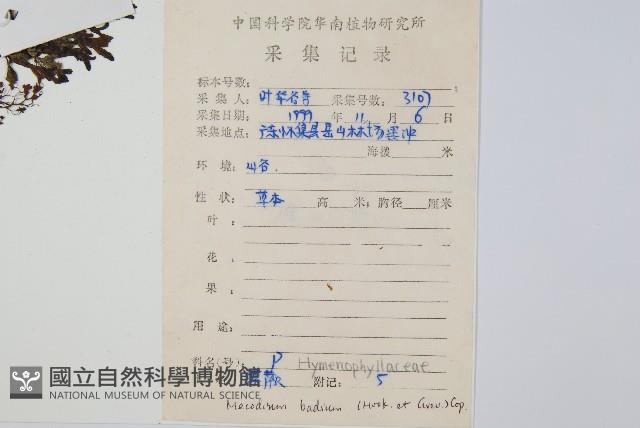 中国科学院华南植物研究所
采集记录
标本号数：
采集人：叶华谷等 采集号数：3107
采集日期：1999年11月6日
采集地点：广东怀集县岳山林场
海拨 米
环境：山谷.
性状：草本 高 米；胸径 厘米
叶：
花
果：
用途：
科名(号)： P Hymenophyllaceae
附记： 5
Mecodium badium (Hook. et Grev.) Cop.
國立自然科學博物館
NATIONAL MUSEUM OF NATURAL SCIENCE